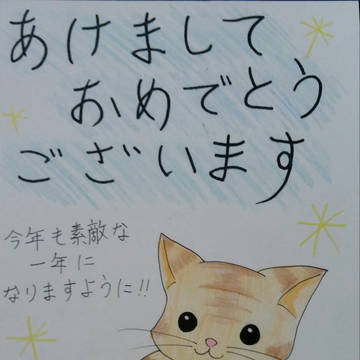 あけまして
おめでとう
ございます
今年も素敵な
一年に
なりますように!!